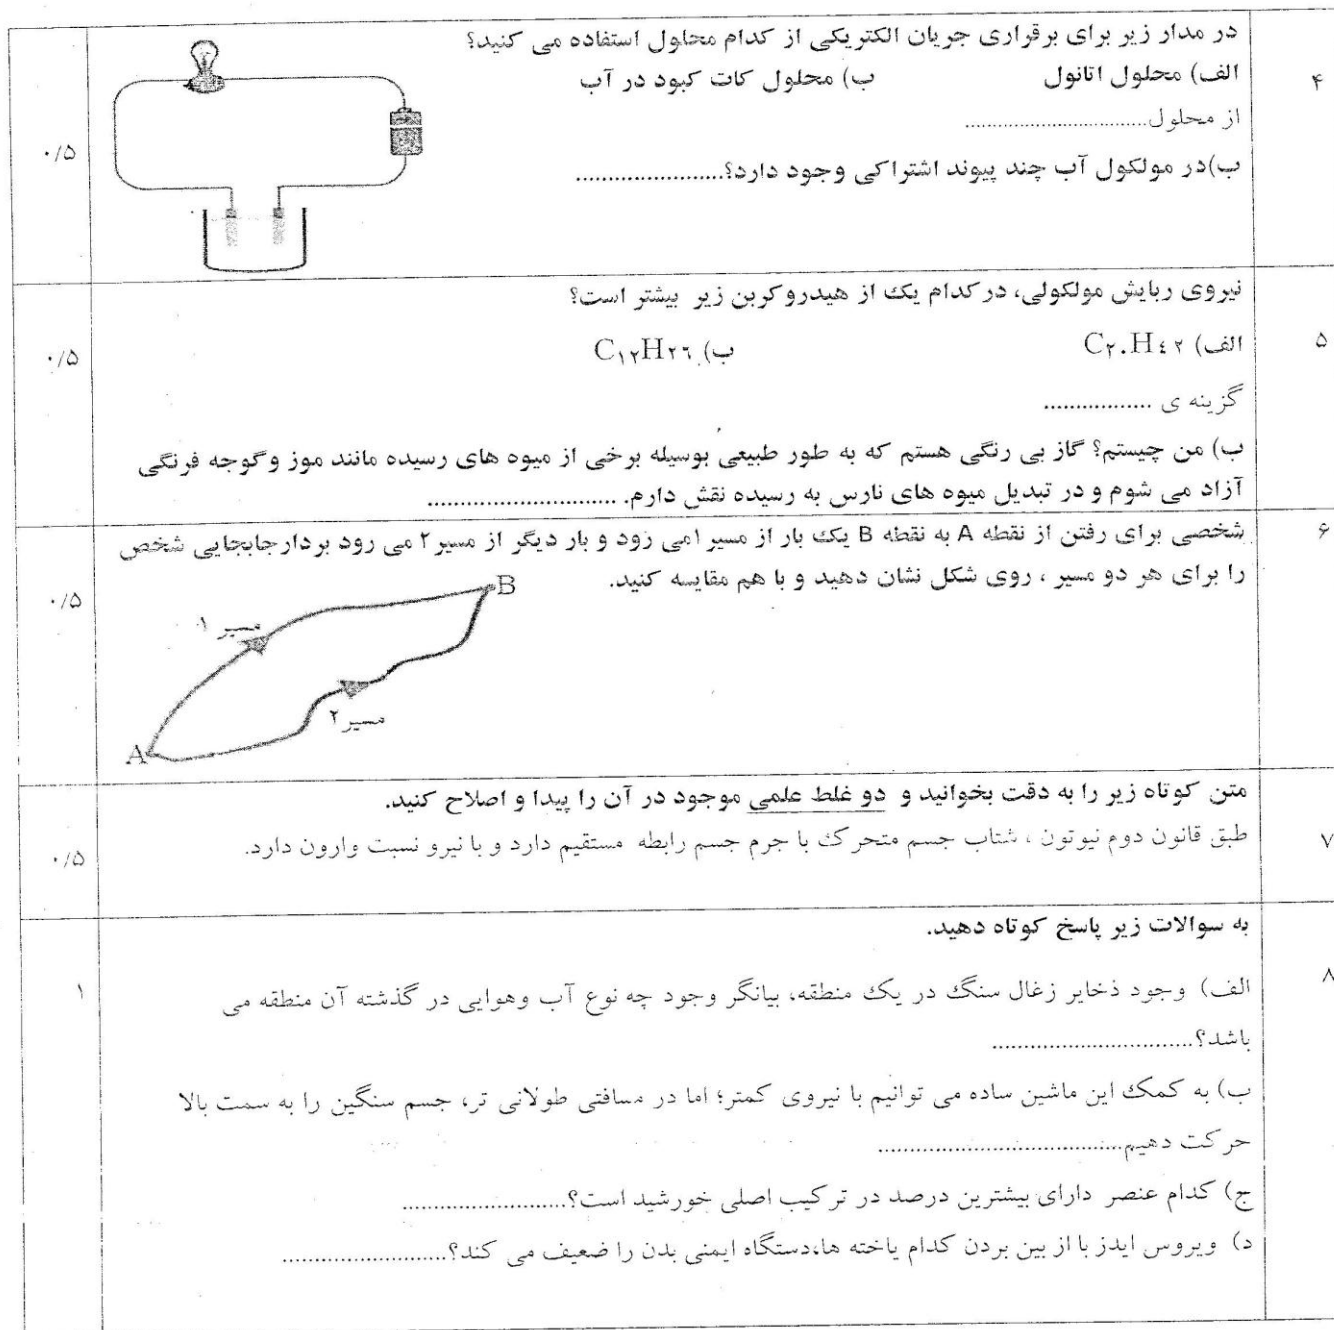 ۴
در مدار زیر برای برقراری جریان الکتریکی از کدام محلول استفاده می کنید؟
الف) محلول اتانول ب) محلول کات کبود در آب
از محلول..............................
ب)در مولکول آب چند پیوند اشتراکی وجود دارد؟.......................
۰/۵
۵
نیروی ربایش مولکولی، در کدام یک از هیدروکربن زیر بیشتر است؟
الف) C۲۰H٤۲ ب) C۱۲H۲٦
گزینه ی .................
ب) من چیستم؟ گاز بی رنگی هستم که به طور طبیعی بوسیله برخی از میوه های رسیده مانند موز و گوجه فرنگی
آزاد می شوم و در تبدیل میوه های نارس به رسیده نقش دارم. .............................
۰/۵
۶
شخصی برای رفتن از نقطه A به نقطه B یک بار از مسیر ۱می رود و بار دیگر از مسیر ۲ می رود بردار جابجایی شخص
را برای هر دو مسیر ، روی شکل نشان دهید و با هم مقایسه کنید.
B
مسیر ۱
مسیر ۲
A
۰/۵
۷
متن کوتاه زیر را به دقت بخوانید و دو غلط علمی موجود در آن را پیدا و اصلاح کنید.
طبق قانون دوم نیوتون ، شتاب جسم متحرک با جرم جسم رابطه مستقیم دارد و با نیرو نسبت وارون دارد.
۰/۵
۸
به سوالات زیر پاسخ کوتاه دهید.
الف) وجود ذخایر زغال سنگ در یک منطقه، بیانگر وجود چه نوع آب وهوایی در گذشته آن منطقه می
باشد؟...............................
ب) به کمک این ماشین ساده می توانیم با نیروی کمتر؛ اما در مسافتی طولانی تر، جسم سنگین را به سمت بالا
حرکت دهیم.......................................
ج) کدام عنصر دارای بیشترین درصد در ترکیب اصلی خورشید است؟..........................
د) ویروس ایدز با از بین بردن کدام یاخته ها،دستگاه ایمنی بدن را ضعیف می کند؟..........................
۱